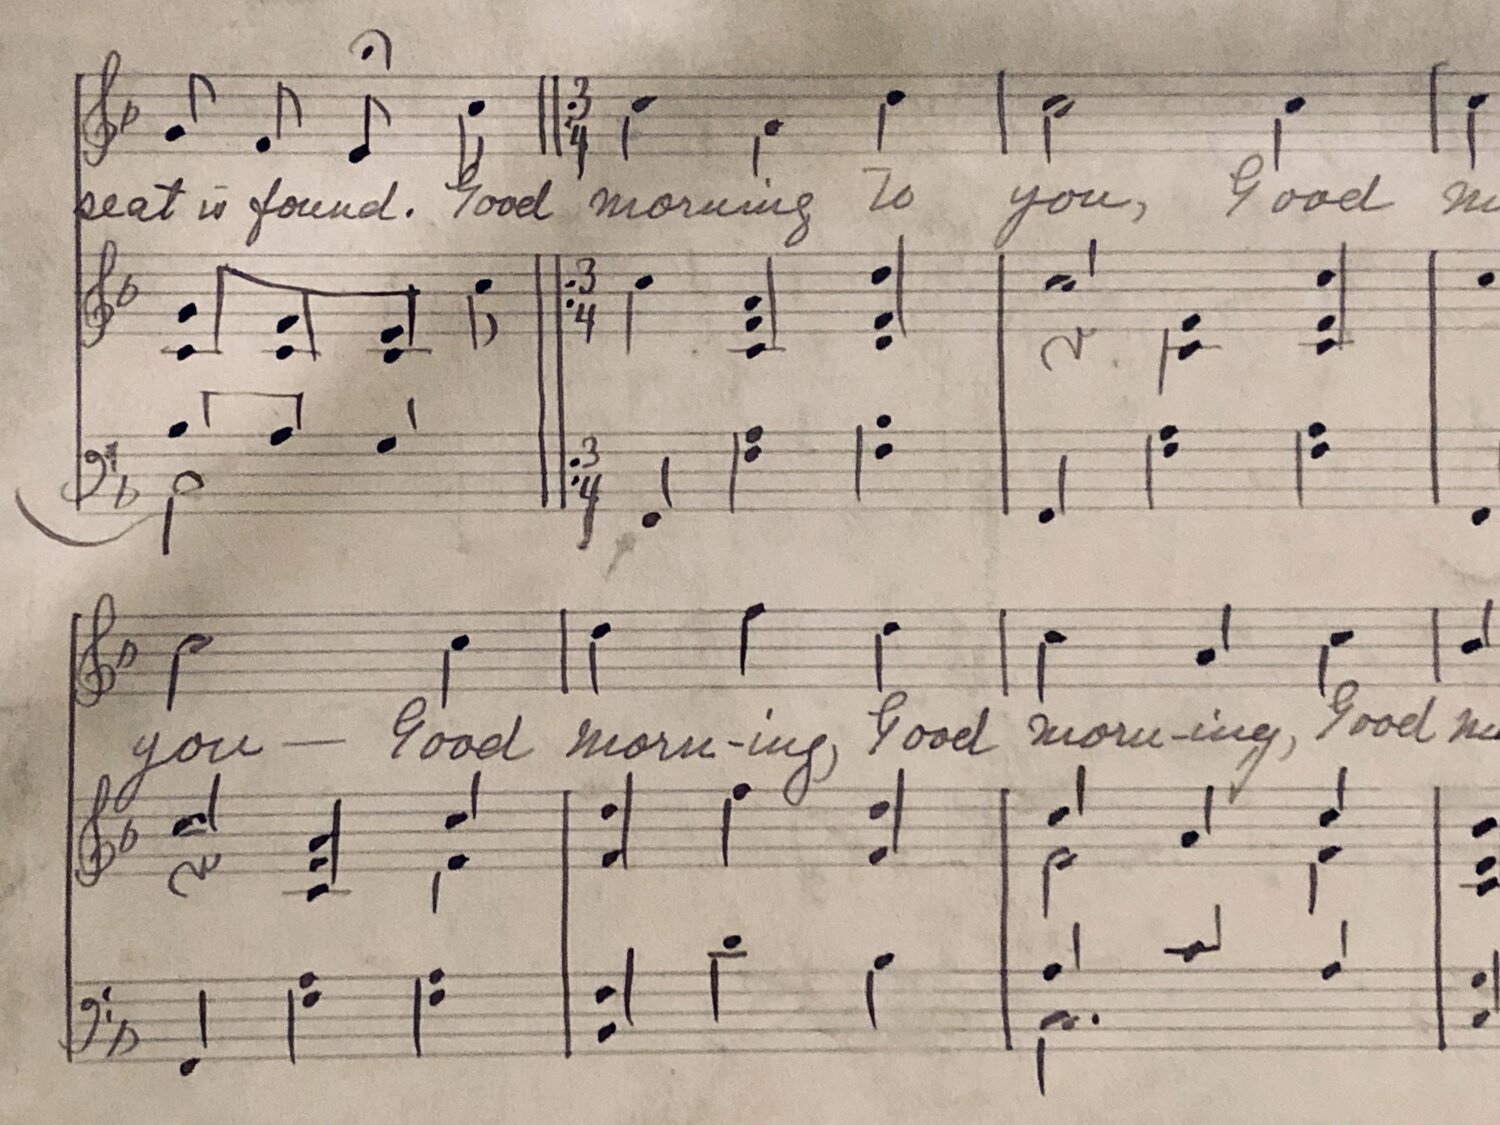 seat is found. Good morning To you, Good
3 4
3 4
3 4
you — Good morn-ing, Good morn-ing, Good